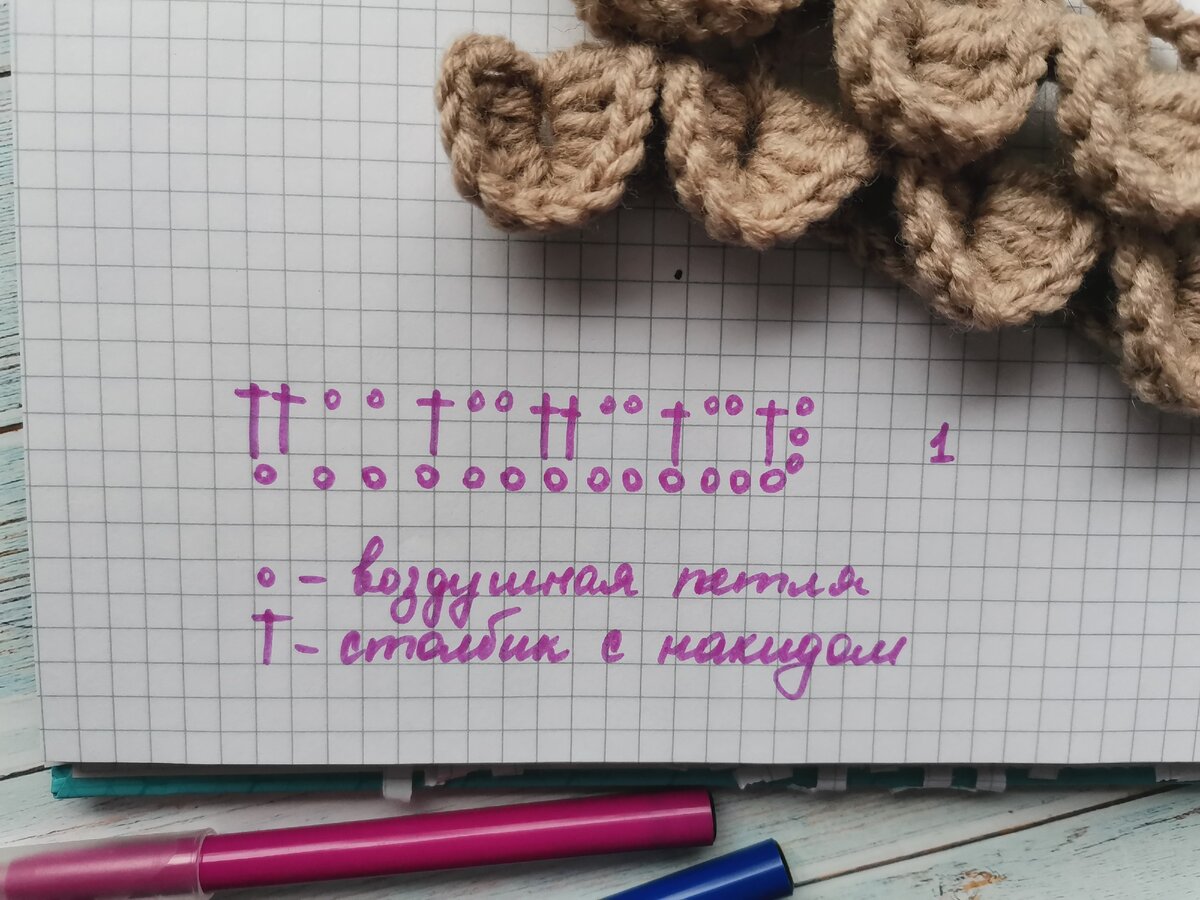 1
о - воздушная петля
† - столбик с накидом